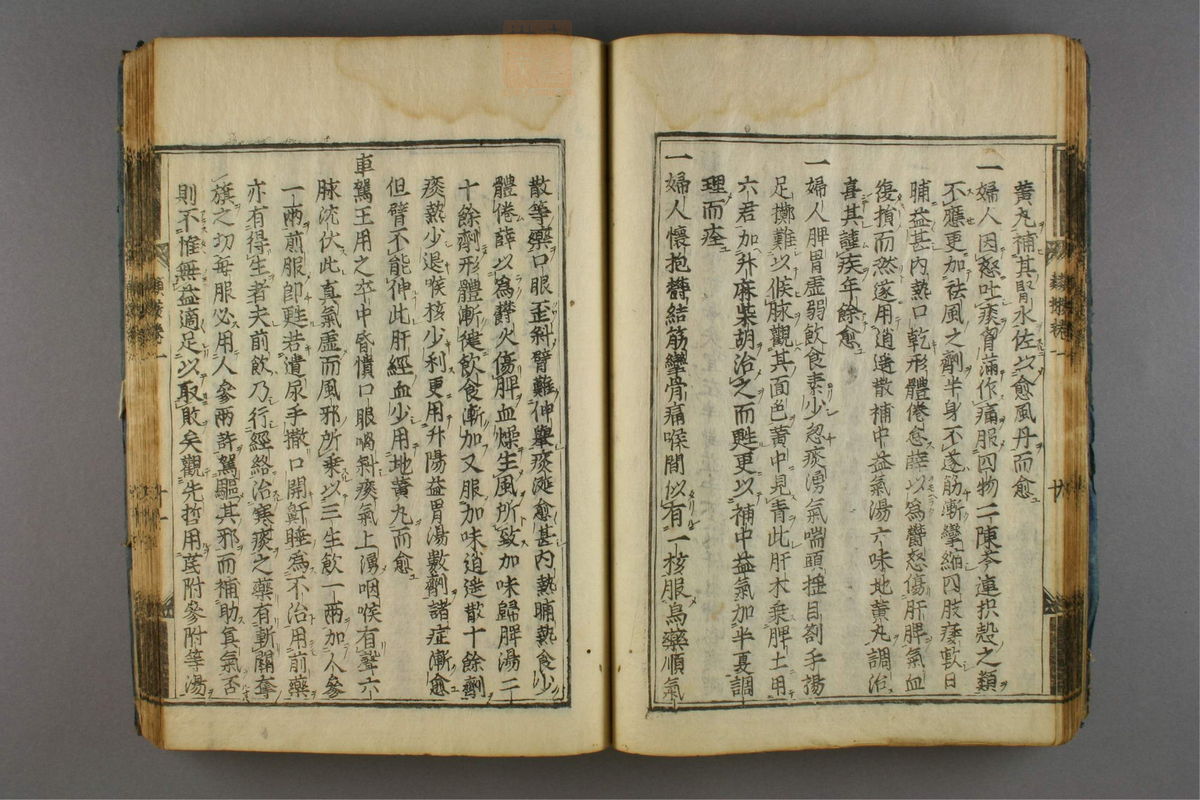 黃丸補其腎水佐以愈風丹而愈
一婦人因怒吐痰胷滿作痛服四物二陳芩連枳殼之類
不應更加祛風之劑半身不遂筋漸攣縮四肢痿軟日
晡益甚內熱口乾形體倦怠薛以爲鬱怒傷肝脾氣血
復損而然遂用逍遙散補中益氣湯六味地黃丸調治
喜其謹疾年餘愈
一婦人脾胃虛弱飲食素少忽痰湧氣喘頭搖目劄手揚
足擲難以候脉觀其面色黃中見青此肝木乘脾土用
六君加升麻柴胡治之而甦更以補中益氣加半夏調
理而痊
一婦人懷抱鬱結筋攣骨痛喉間似有一核服烏藥順氣
散等藥口眼歪斜臂難伸舉痰涎愈甚內熱晡熱食少
體倦薛以爲鬱火傷脾血燥生風所致加味歸脾湯二
十餘劑形體漸健飲食漸加又服加味逍遙散十餘劑
痰熱少退喉核少利更用升陽益胃湯數劑諸症漸愈
但臂不能伸此肝經血少用地黃丸而愈
車駕王用之卒中昏憒口眼喎斜痰氣上湧咽喉有聲六
脉沈伏此真氣虛而風邪所乘以三生飲一兩加人參
一兩煎服卽甦若遺尿手撒口開鼾睡爲不治用前藥
亦有得生者夫前飲乃行經絡治寒痰之藥有斬關奪
旗之功每服必用人參兩許駕驅其邪而補助真氣否
則不惟無益適足以取敗矣觀先哲用芪附參附等湯